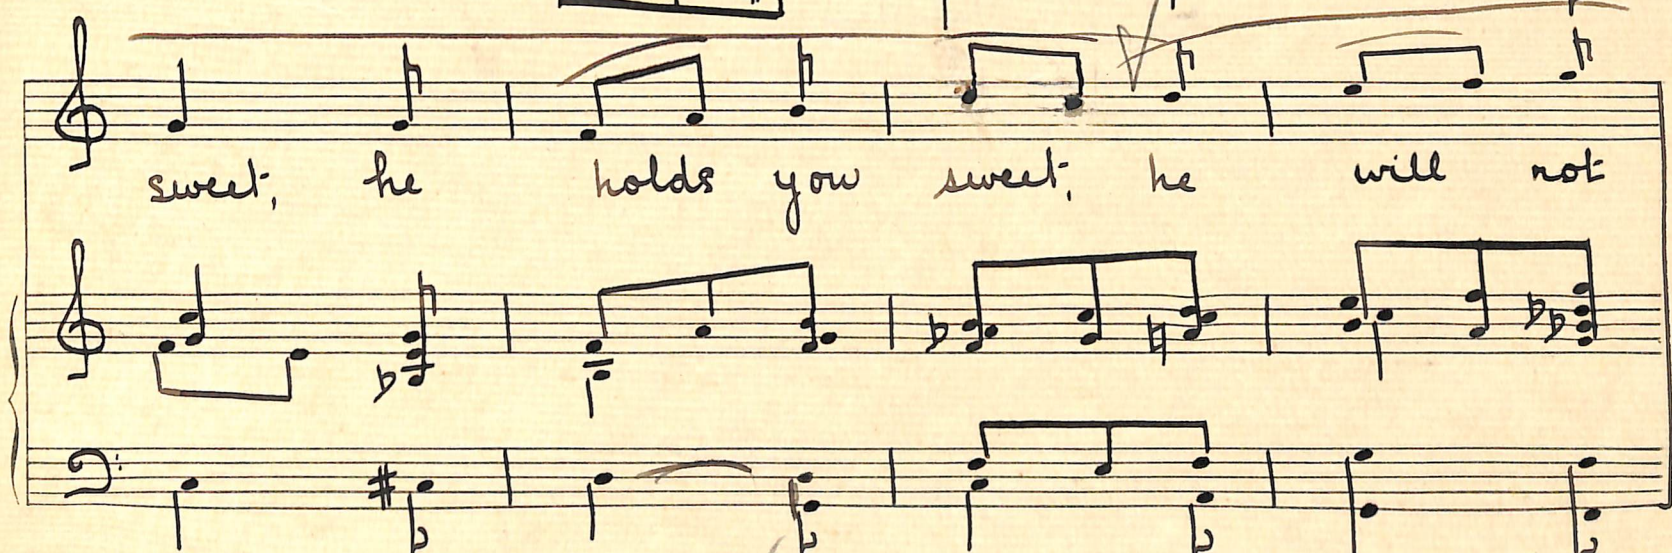 sweet, he holds you sweet, he will not